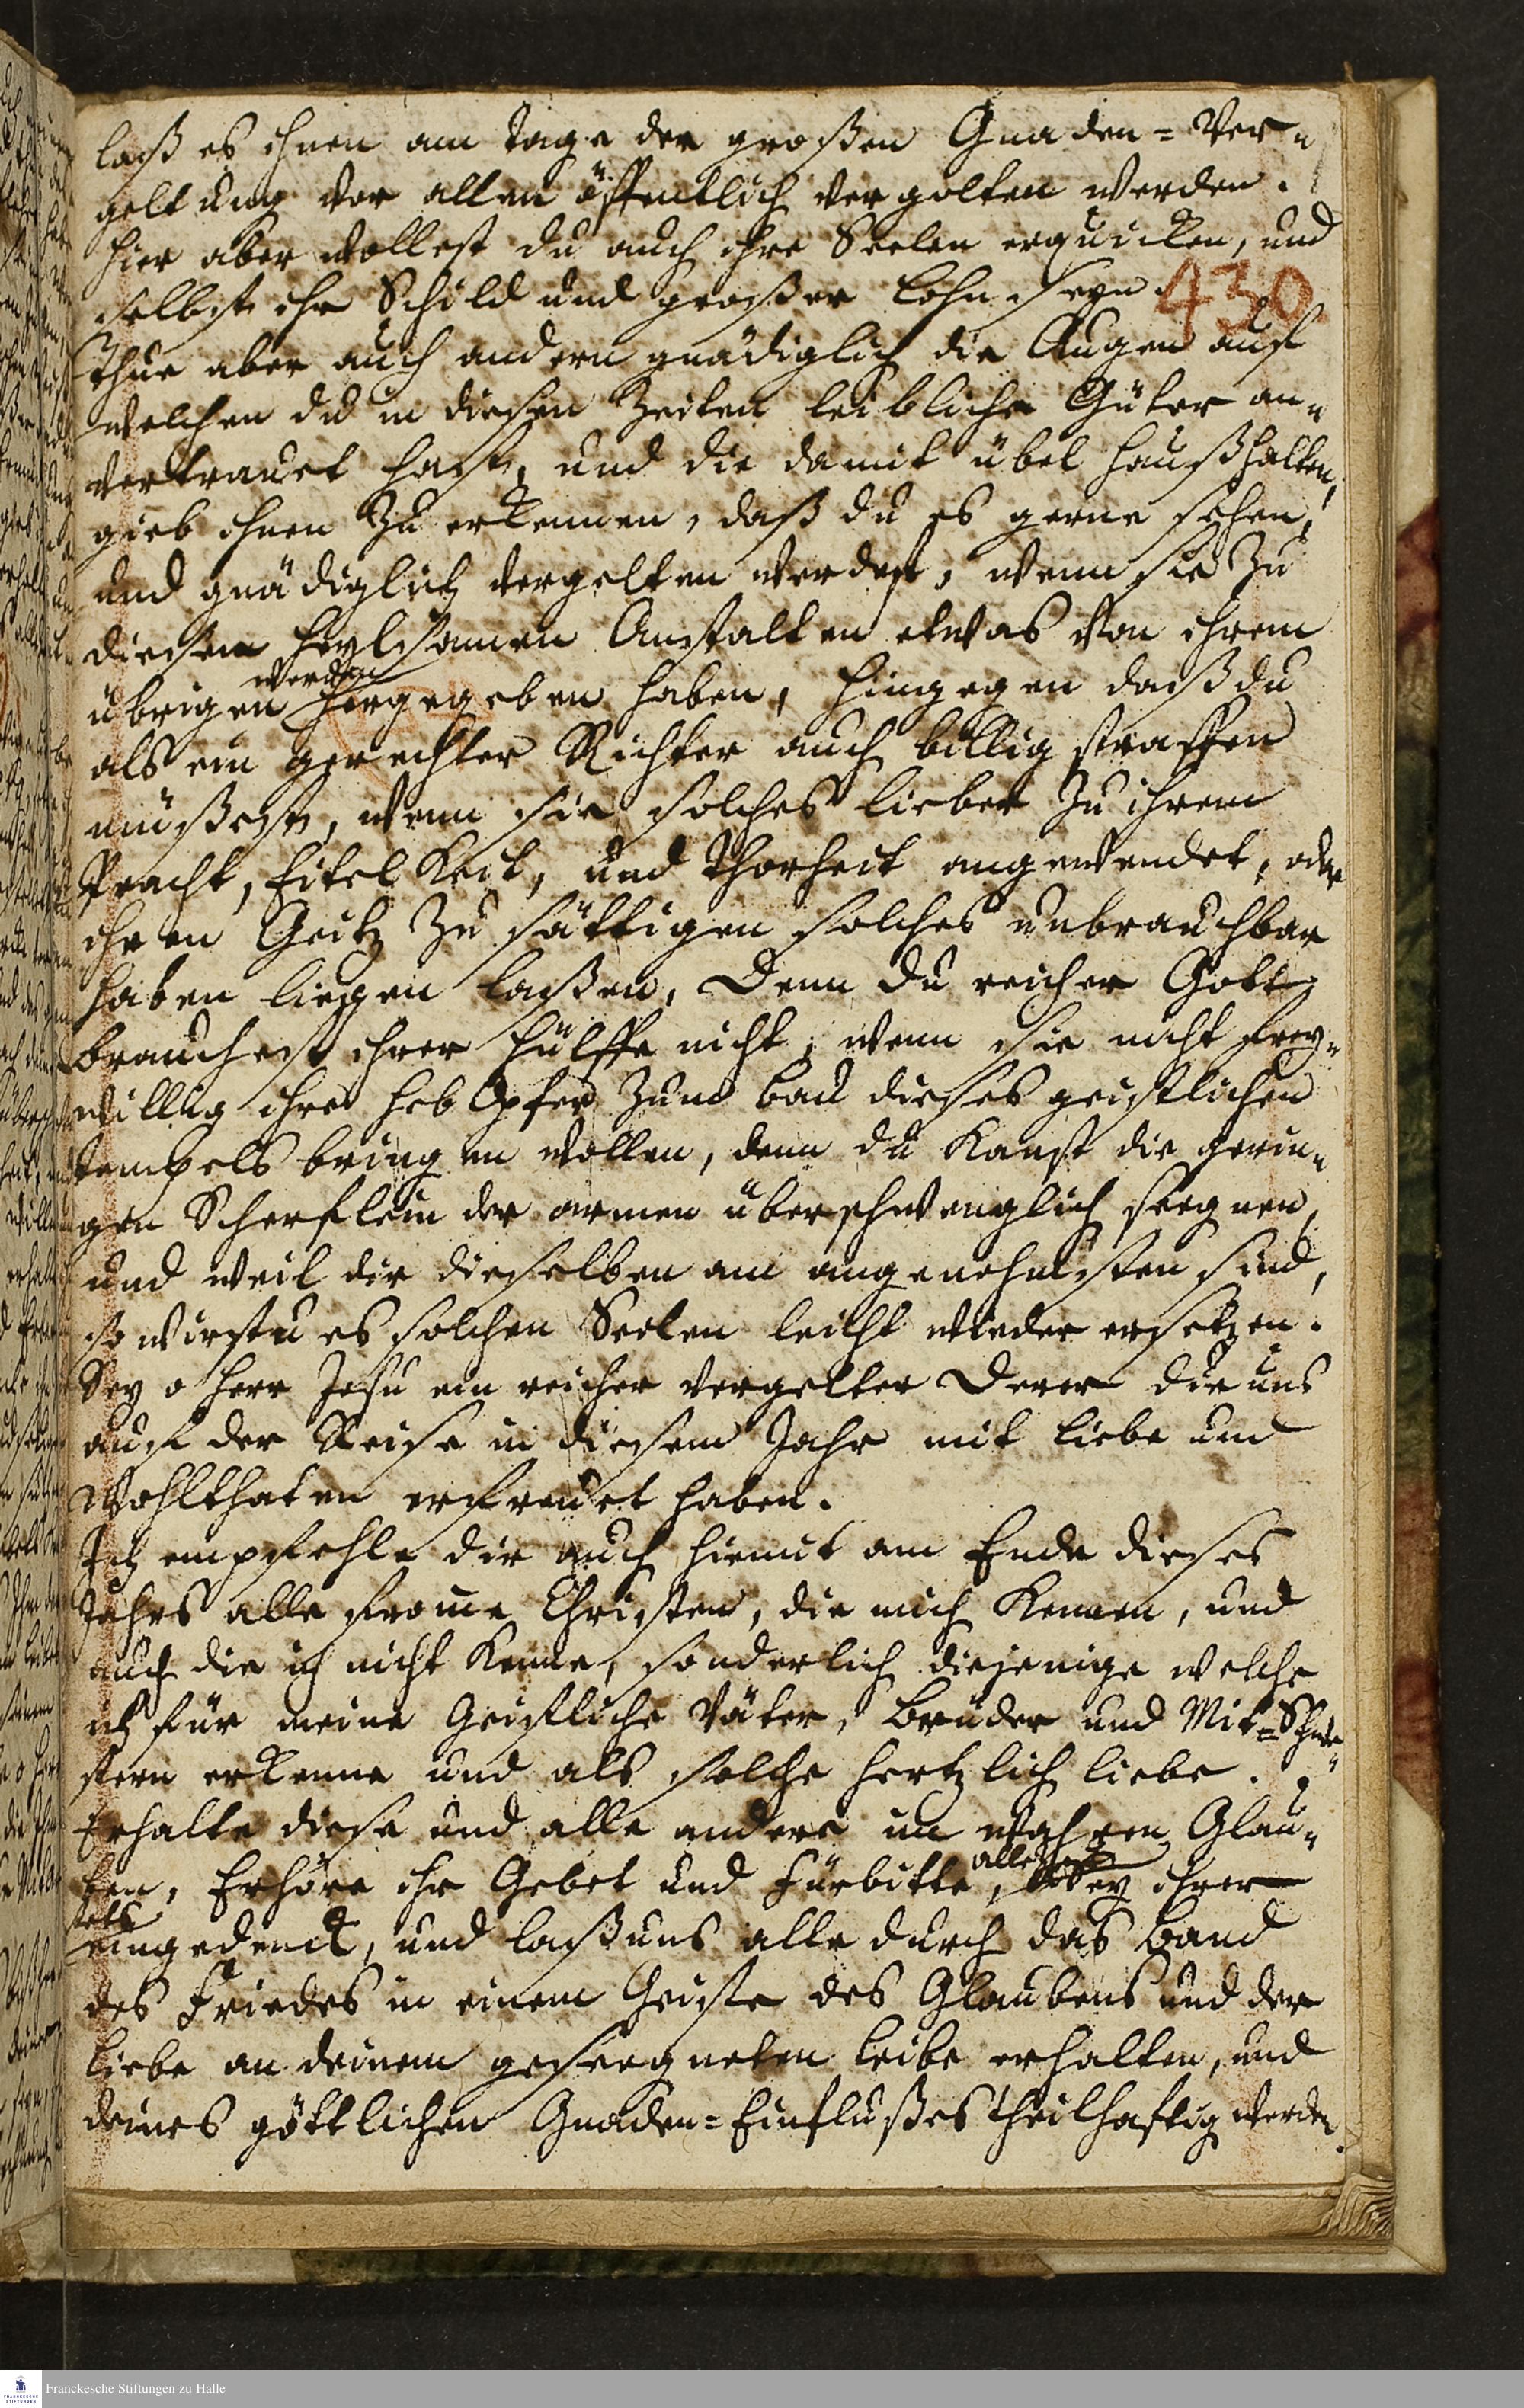 laß es ihnen am tage der großen Gnaden=Ver=
geltung vor allen öffentlich vergolten werden.
hier aber wollest du auch ihre Seelen erquicken, und
selbst ihr Schild und großer Lohn seyn.
430
Thue aber auch andern gnädiglich die Augen auf
welchen du in diesen Zeiten leibliche Güter an=
vertrauet hast, und die damit übel haußhalten,
gieb ihnen zu erkennen, daß du es gerne sehen,
und gnädiglich vergelten werdest, wenn sie zu
diesen heylsamen Anstalten etwas von ihrem
werden
übrigen hergegeben haben, hingegen daß du
als ein gerechter Richter auch billig straffen
müßest, wenn sie solches lieber zu ihrem
Pracht, Eitelkeit, und Thorheit angewendet, oder
ihren Geitz zu sättigen solches unbrauchbar
haben liegen laßen. Denn du reicher Gott
brauchest ihrer hülffe nicht, wenn sie nicht frey=
willig ihre heb Opfer zum bau dieses geistlichen
tempels bringen wollen, denn du kanst die gerin=
gen Scherflein der armen überschwenglich seegnen,
und weil dir dieselben am angenehmsten sind,
so wirstu es solchen Seelen leicht wieder ersetzen.
Sey o herr Jesu ein reicher vergelter Derer die uns
auf der Reise in diesem Jahr mit liebe und
Wohlthaten erfreuet haben.
Ich empfehle dir auch hiemit am Ende dieses
Jahrs alle frome Christen, die mich kennen, und
auch die ich nicht kenne, sonderlich diejenige welche
ich für meine Geistliche Väter, Brüder und Mit=Schwe=
stern erkenne und als solche hertzlich liebe.
Erhalte diese und alle andere im wahren Glau=
ben, Erhöre ihr Gebet und Fürbitte, Sey ihrer
aller
eingedenck, und laß uns alle durch das band
des Friedes in einem Geiste des Glaubens und der
liebe an deinem geseegneten leibe erhalten, und
deines göttlichen Gnaden=Einflußes theilhaftig werden.
Franckesche Stiftungen zu Halle